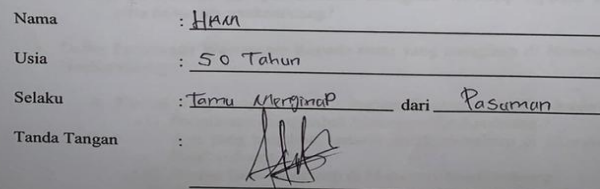 Nama : HAM
Usia : 50 Tahun
Selaku : Tamu Merginap dari Pasuman
Tanda Tangan :